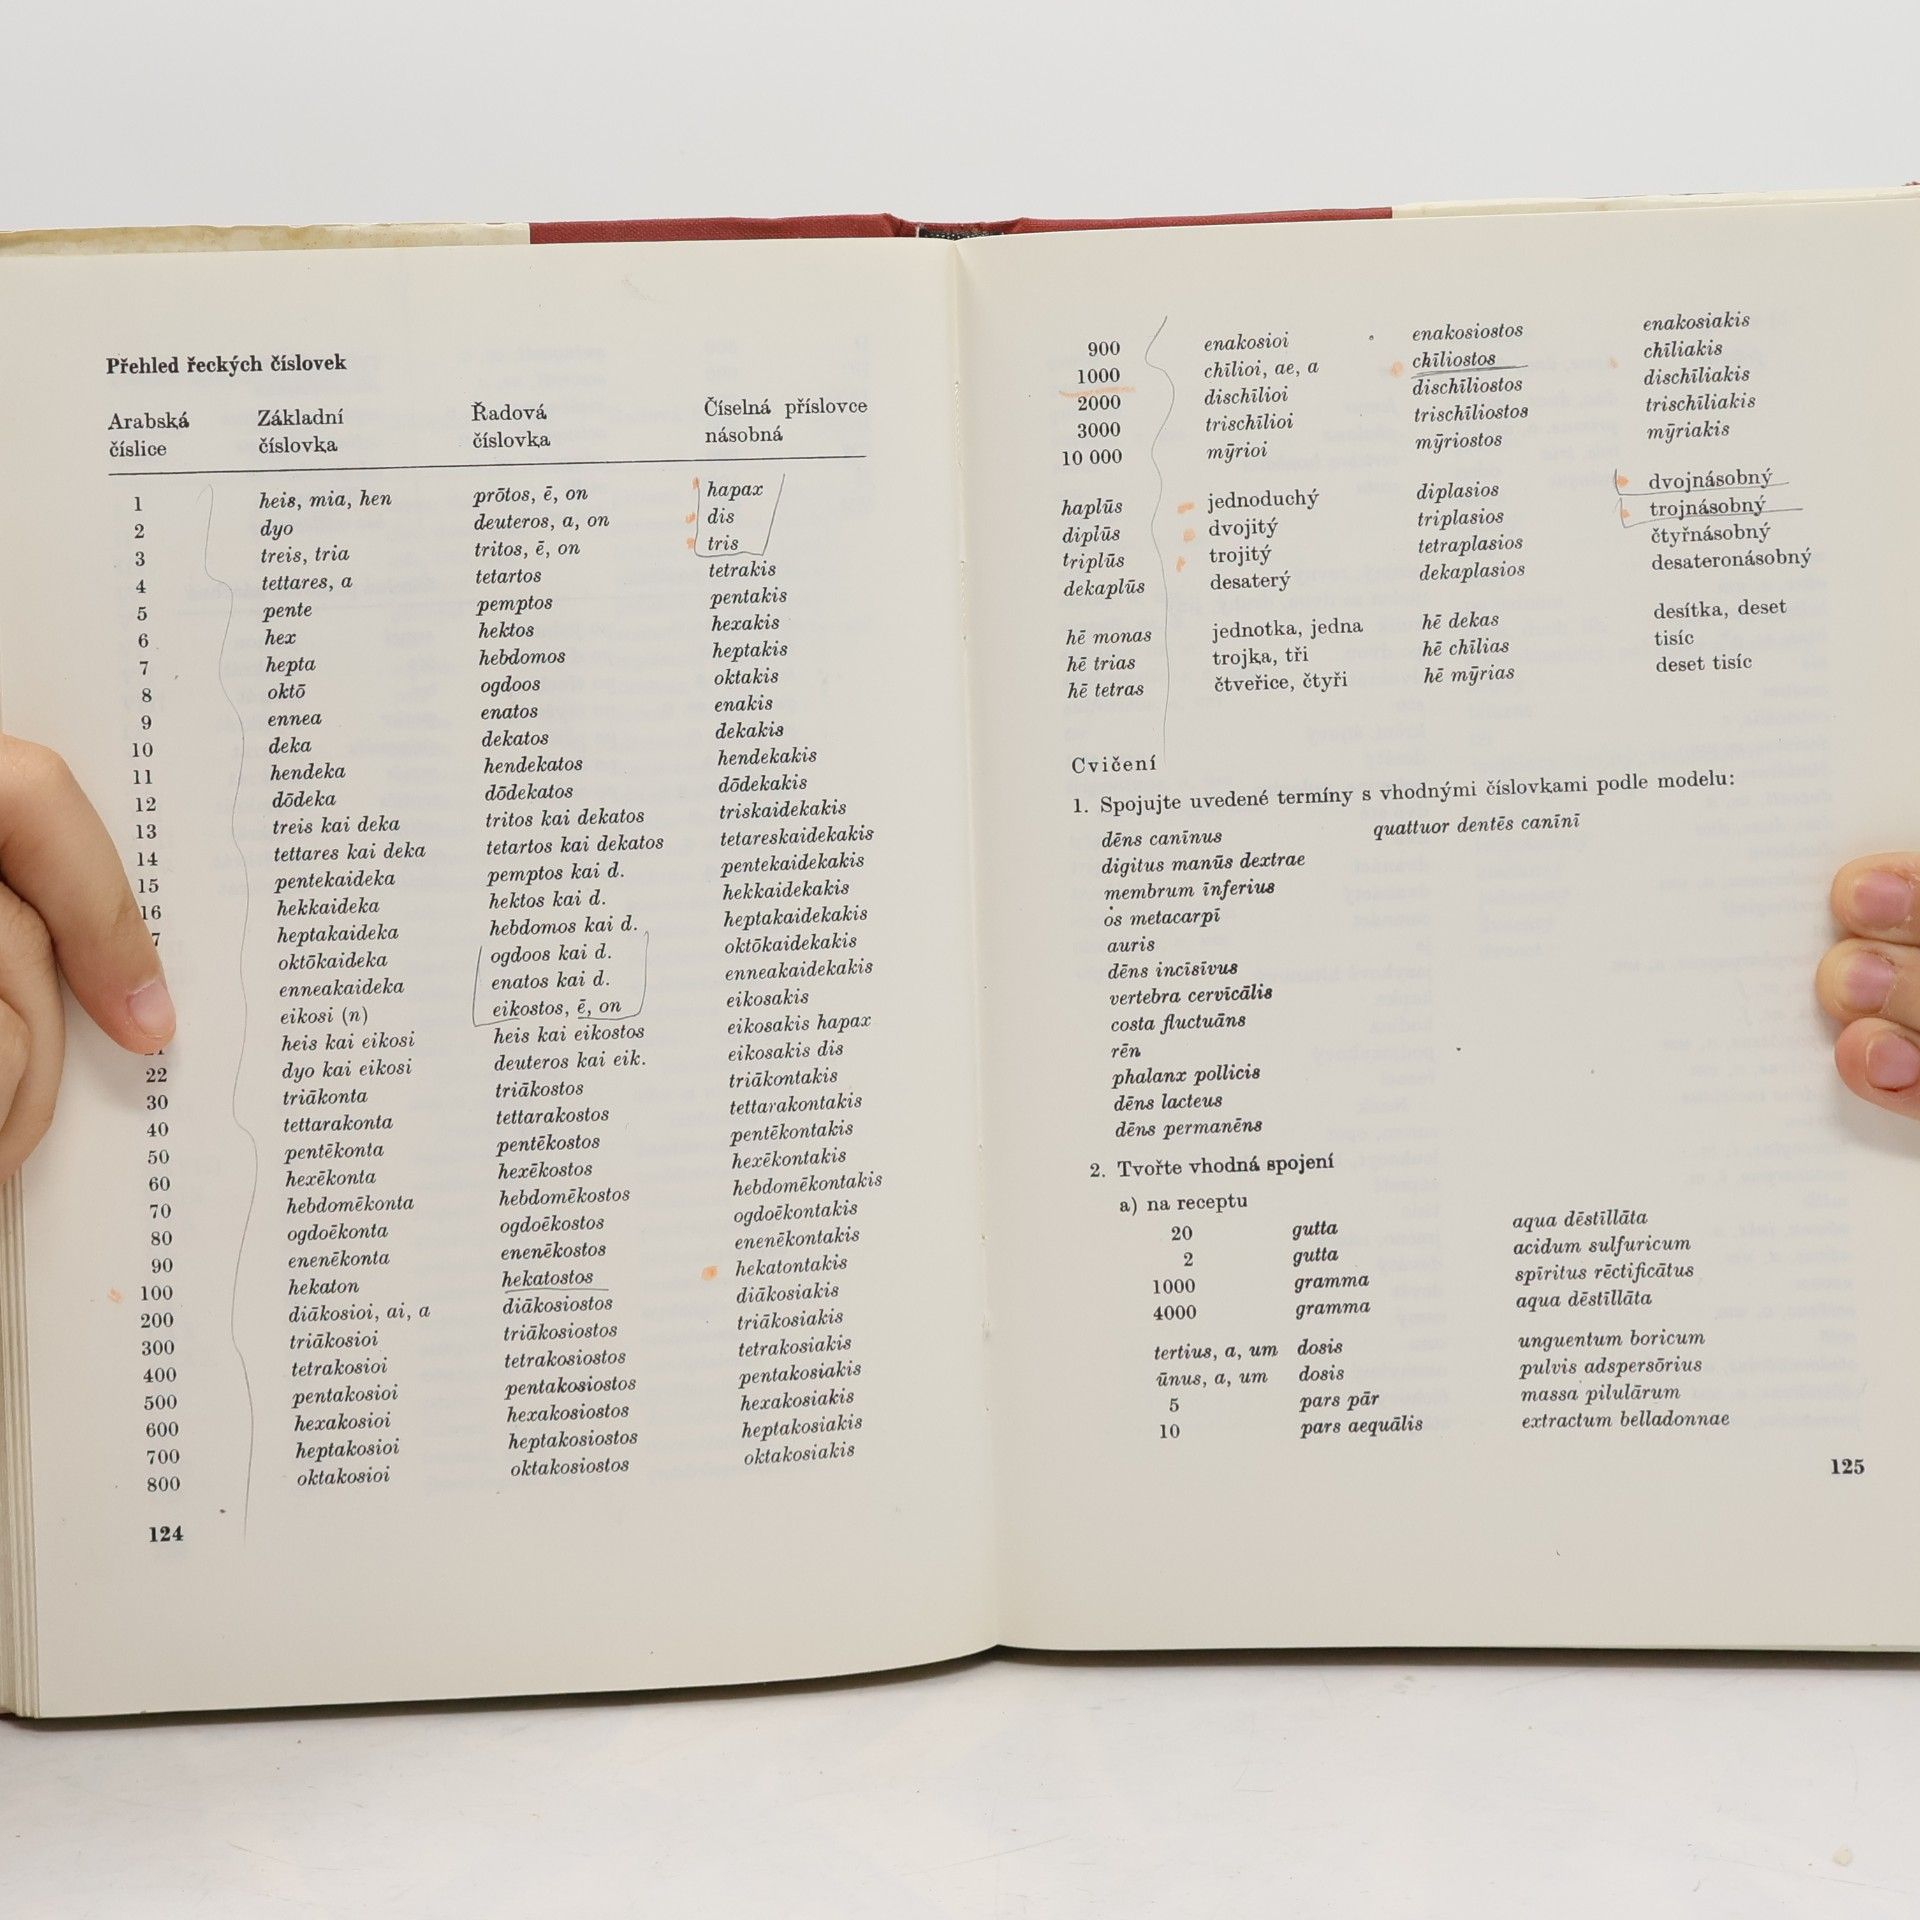 Přehled řeckých číslovek
Arabská číslice Základní číslovka Řadová číslovka Číselná příslovce násobná
1 heis, mia, hen prōtos, ē, on hapax
2 dyo deuteros, a, on dis
3 treis, tria tritos, ē, on tris
4 tettares, a tetartos tetrakis
5 pente pemptos pentakis
6 hex hektos hexakis
7 hepta hebdomos heptakis
8 oktō ogdoos oktakis
9 ennea enatos enakis
10 deka dekatos dekakis
11 hendeka hendekatos hendekakis
12 dōdeka dōdekatos dōdekakis
13 treis kai deka tritos kai dekatos triskaidekakis
14 tettares kai deka tetartos kai dekatos tetareskaidekakis
15 pentekaideka pemptos kai d. pentekaidekakis
16 hekkaideka hektos kai d. hekkaidekakis
7 heptakaideka hebdomos kai d. heptakaidekakis
oktōkaideka ogdoos kai d. oktōkaidekakis
enneakaideka enatos kai d. enneakaidekakis
eikosi (n) eikostos, ē, on eikosakis
heis kai eikosi heis kai eikostos eikosakis hapax
22 dyo kai eikosi deuteros kai eik. eikosakis dis
30 triākonta triākostos triākontakis
40 tettarakonta tettarakostos tettarakontakis
50 pentēkonta pentēkostos pentēkontakis
60 hexēkonta hexēkostos hexēkontakis
70 hebdomēkonta hebdomēkostos hebdomēkontakis
80 ogdoēkonta ogdoēkostos ogdoēkontakis
90 enenēkonta enenēkostos enenēkontakis
100 hekaton hekatostos hekatontakis
200 diākosioi, ai, a diākosiostos diākosiakis
300 triākosioi triākosiostos triākosiakis
400 tetrakosioi tetrakosiostos tetrakosiakis
500 pentakosioi pentakosiostos pentakosiakis
600 hexakosioi hexakosiostos hexakosiakis
700 heptakosioi heptakosiostos heptakosiakis
800 oktakosioi oktakosiostos oktakosiakis
124
900 enakosioi enakosiostos enakosiakis
1000 chīlioi, ae, a chīliostos chīliakis
2000 dischīlioi dischīliostos dischīliakis
3000 trischīlioi trischīliostos trischīliakis
10 000 mȳrioi mȳriostos mȳriakis
haplūs jednoduchý diplasios dvojnásobný
diplūs dvojitý triplasios trojnásobný
triplūs trojitý tetraplasios čtyřnásobný
dekaplūs desaterý dekaplasios desateronásobný
hē monas jednotka, jedna hē dekas desítka, deset
hē trias trojka, tři hē chīlias tisíc
hē tetras čtveřice, čtyři hē mȳrias deset tisíc
Cvičení
1. Spojujte uvedené termíny s vhodnými číslovkami podle modelu:
dēns canīnus quattuor dentēs canīnī
digitus manūs dextrae
membrum īnferius
os metacarpī
auris
dēns incīsīvus
vertebra cervīcālis
costa fluctuāns
rēn
phalanx pollicis
dēns lacteus
dēns permanēns
2. Tvořte vhodná spojení
a) na receptu
20 gutta aqua dēstīllāta
2 gutta acidum sulfuricum
1000 gramma spīritus rēctificātus
4000 gramma aqua dēstīllāta
tertius, a, um dosis unguentum boricum
ūnus, a, um dosis pulvis adspersōrius
5 pars pār massa pilulārum
10 pars aequālis extractum belladonnae
125